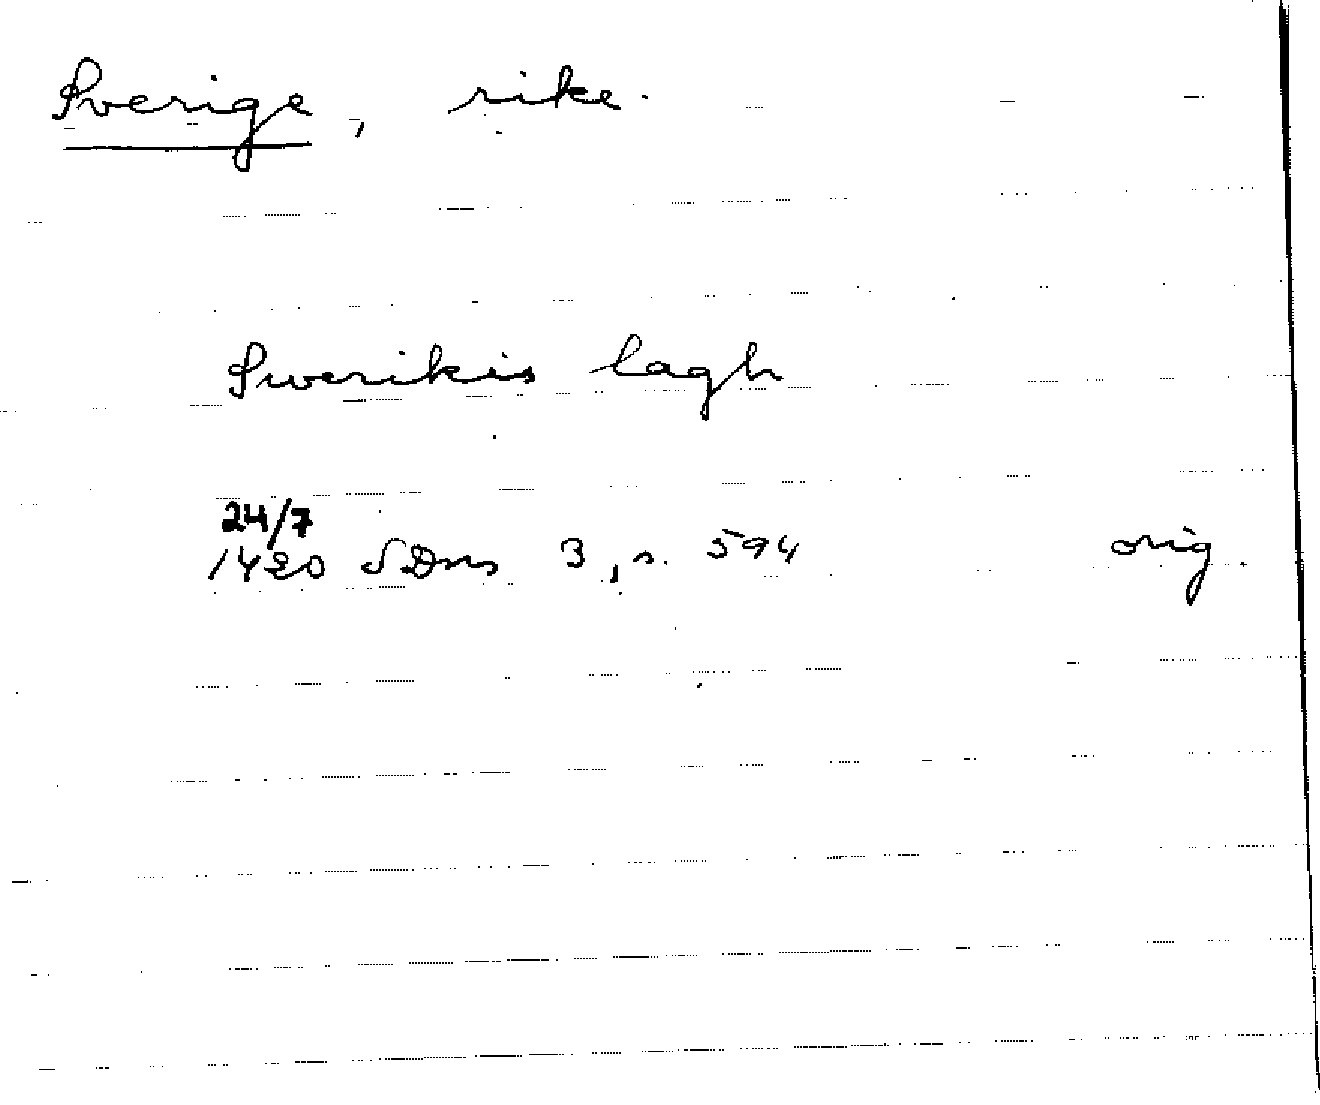 Sverige, rike.
Swerikis lagh
24/7
1420 SDns 3, s. 594 orig.